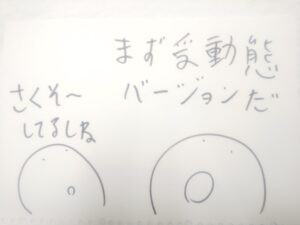 まず受動態
バージョンだ
さくそ〜
してるしね